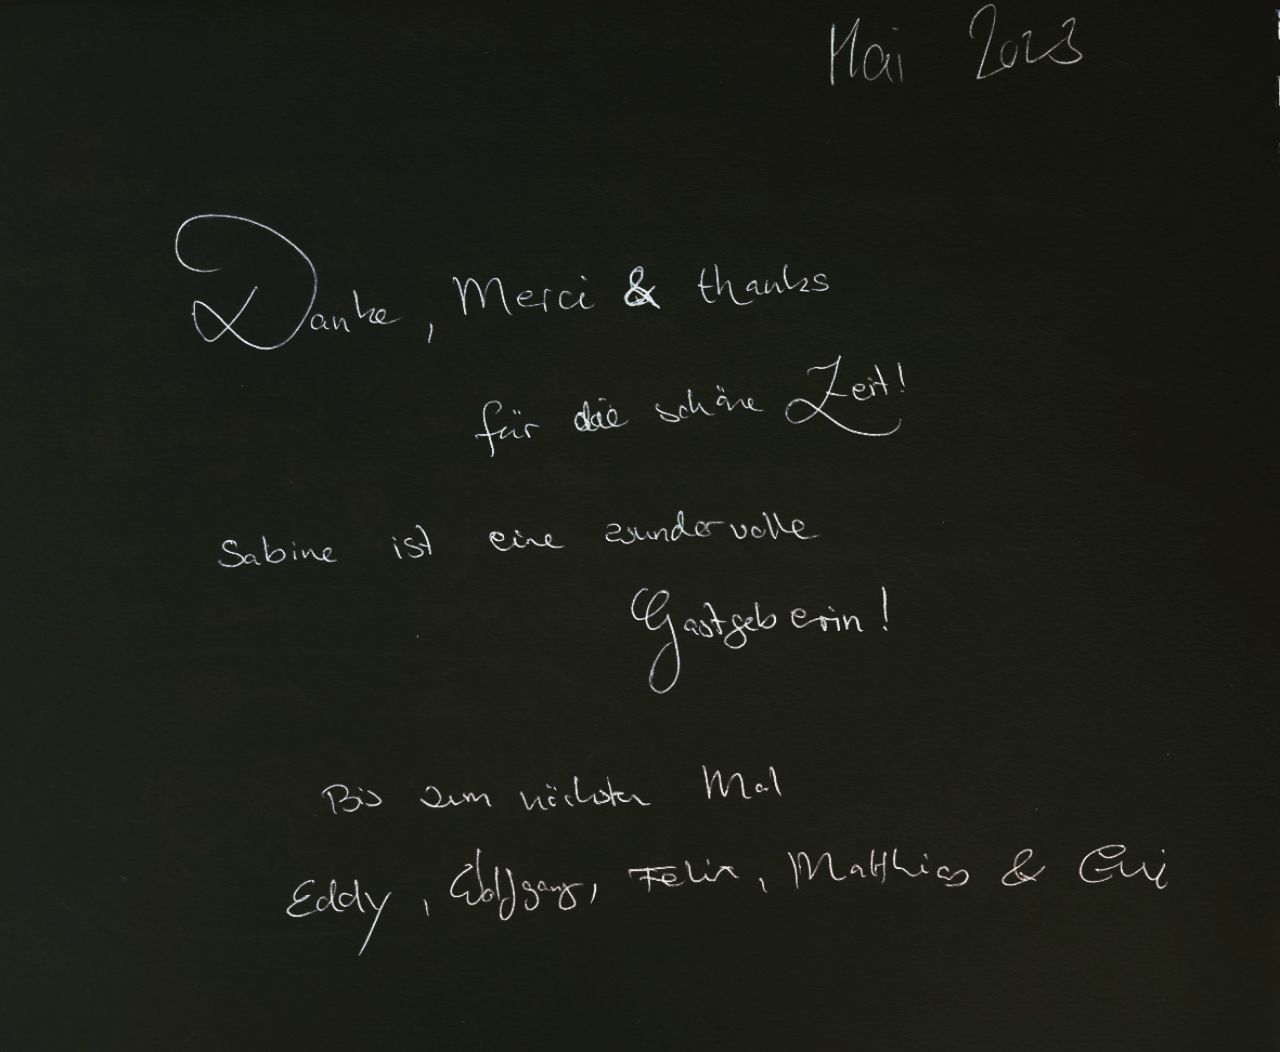 Mai 2023
Danke, Merci & thanks
für die schöne Zeit!
Sabine ist eine wundervolle
Gastgeberin!
Bis zum nächsten Mal
Eddy, Wolfgang, Felix, Matthias & Evi